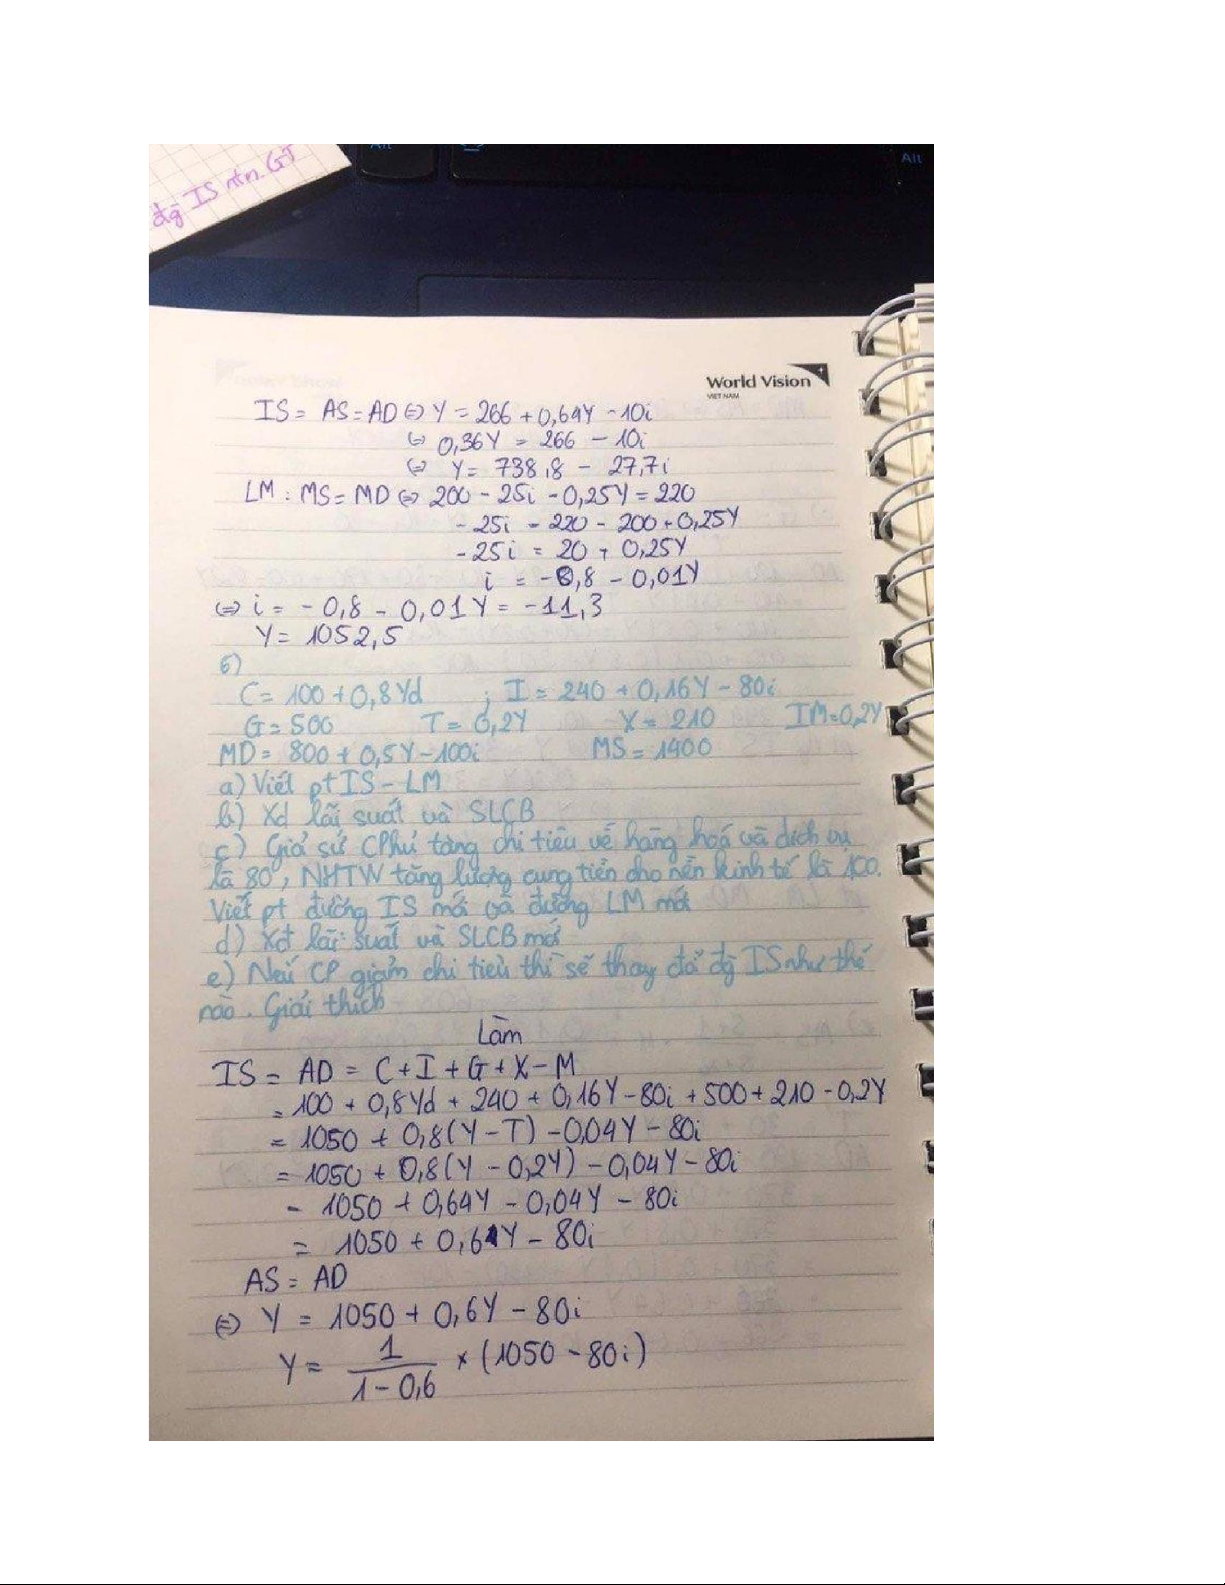 Alt
Alt
đg IS ntn. GT
World Vision
VIET NAM
IS = AS = AD ⇔ Y = 266 + 0,64Y - 10i
⇔ 0,36Y = 266 - 10i
⇔ Y = 738,8 - 27,7i
LM : MS = MD ⇔ 200 - 25i - 0,25Y = 220
- 25i = 220 - 200 + 0,25Y
- 25i = 20 + 0,25Y
i = -0,8 - 0,01Y
⇔ i = - 0,8 - 0,01Y = -11,3
Y = 1052,5
6)
C = 100 + 0,8Yd ; I = 240 + 0,16Y - 80i
G = 500 T = 0,2Y X = 210 IM = 0,2Y
MD = 800 + 0,5Y - 100i MS = 1400
a) Viết pt IS - LM
b) Xđ lãi suất và SLCB
c) Giả sử CPhủ tăng chi tiêu về hàng hoá và dịch vụ
là 80, NHTW tăng lượng cung tiền cho nền kinh tế là 100.
Viết pt đường IS mới và đường LM mới
d) Xđ lãi suất và SLCB mới
e) Nếu CP giảm chi tiêu thì sẽ thay đổi đg IS như thế
nào. Giải thích
Làm
IS = AD = C + I + G + X - M
= 100 + 0,8Yd + 240 + 0,16Y - 80i + 500 + 210 - 0,2Y
= 1050 + 0,8(Y - T) - 0,04Y - 80i
= 1050 + 0,8(Y - 0,2Y) - 0,04Y - 80i
= 1050 + 0,64Y - 0,04Y - 80i
= 1050 + 0,6Y - 80i
AS = AD
⇔ Y = 1050 + 0,6Y - 80i
Y = 1/(1 - 0,6) × (1050 - 80i)